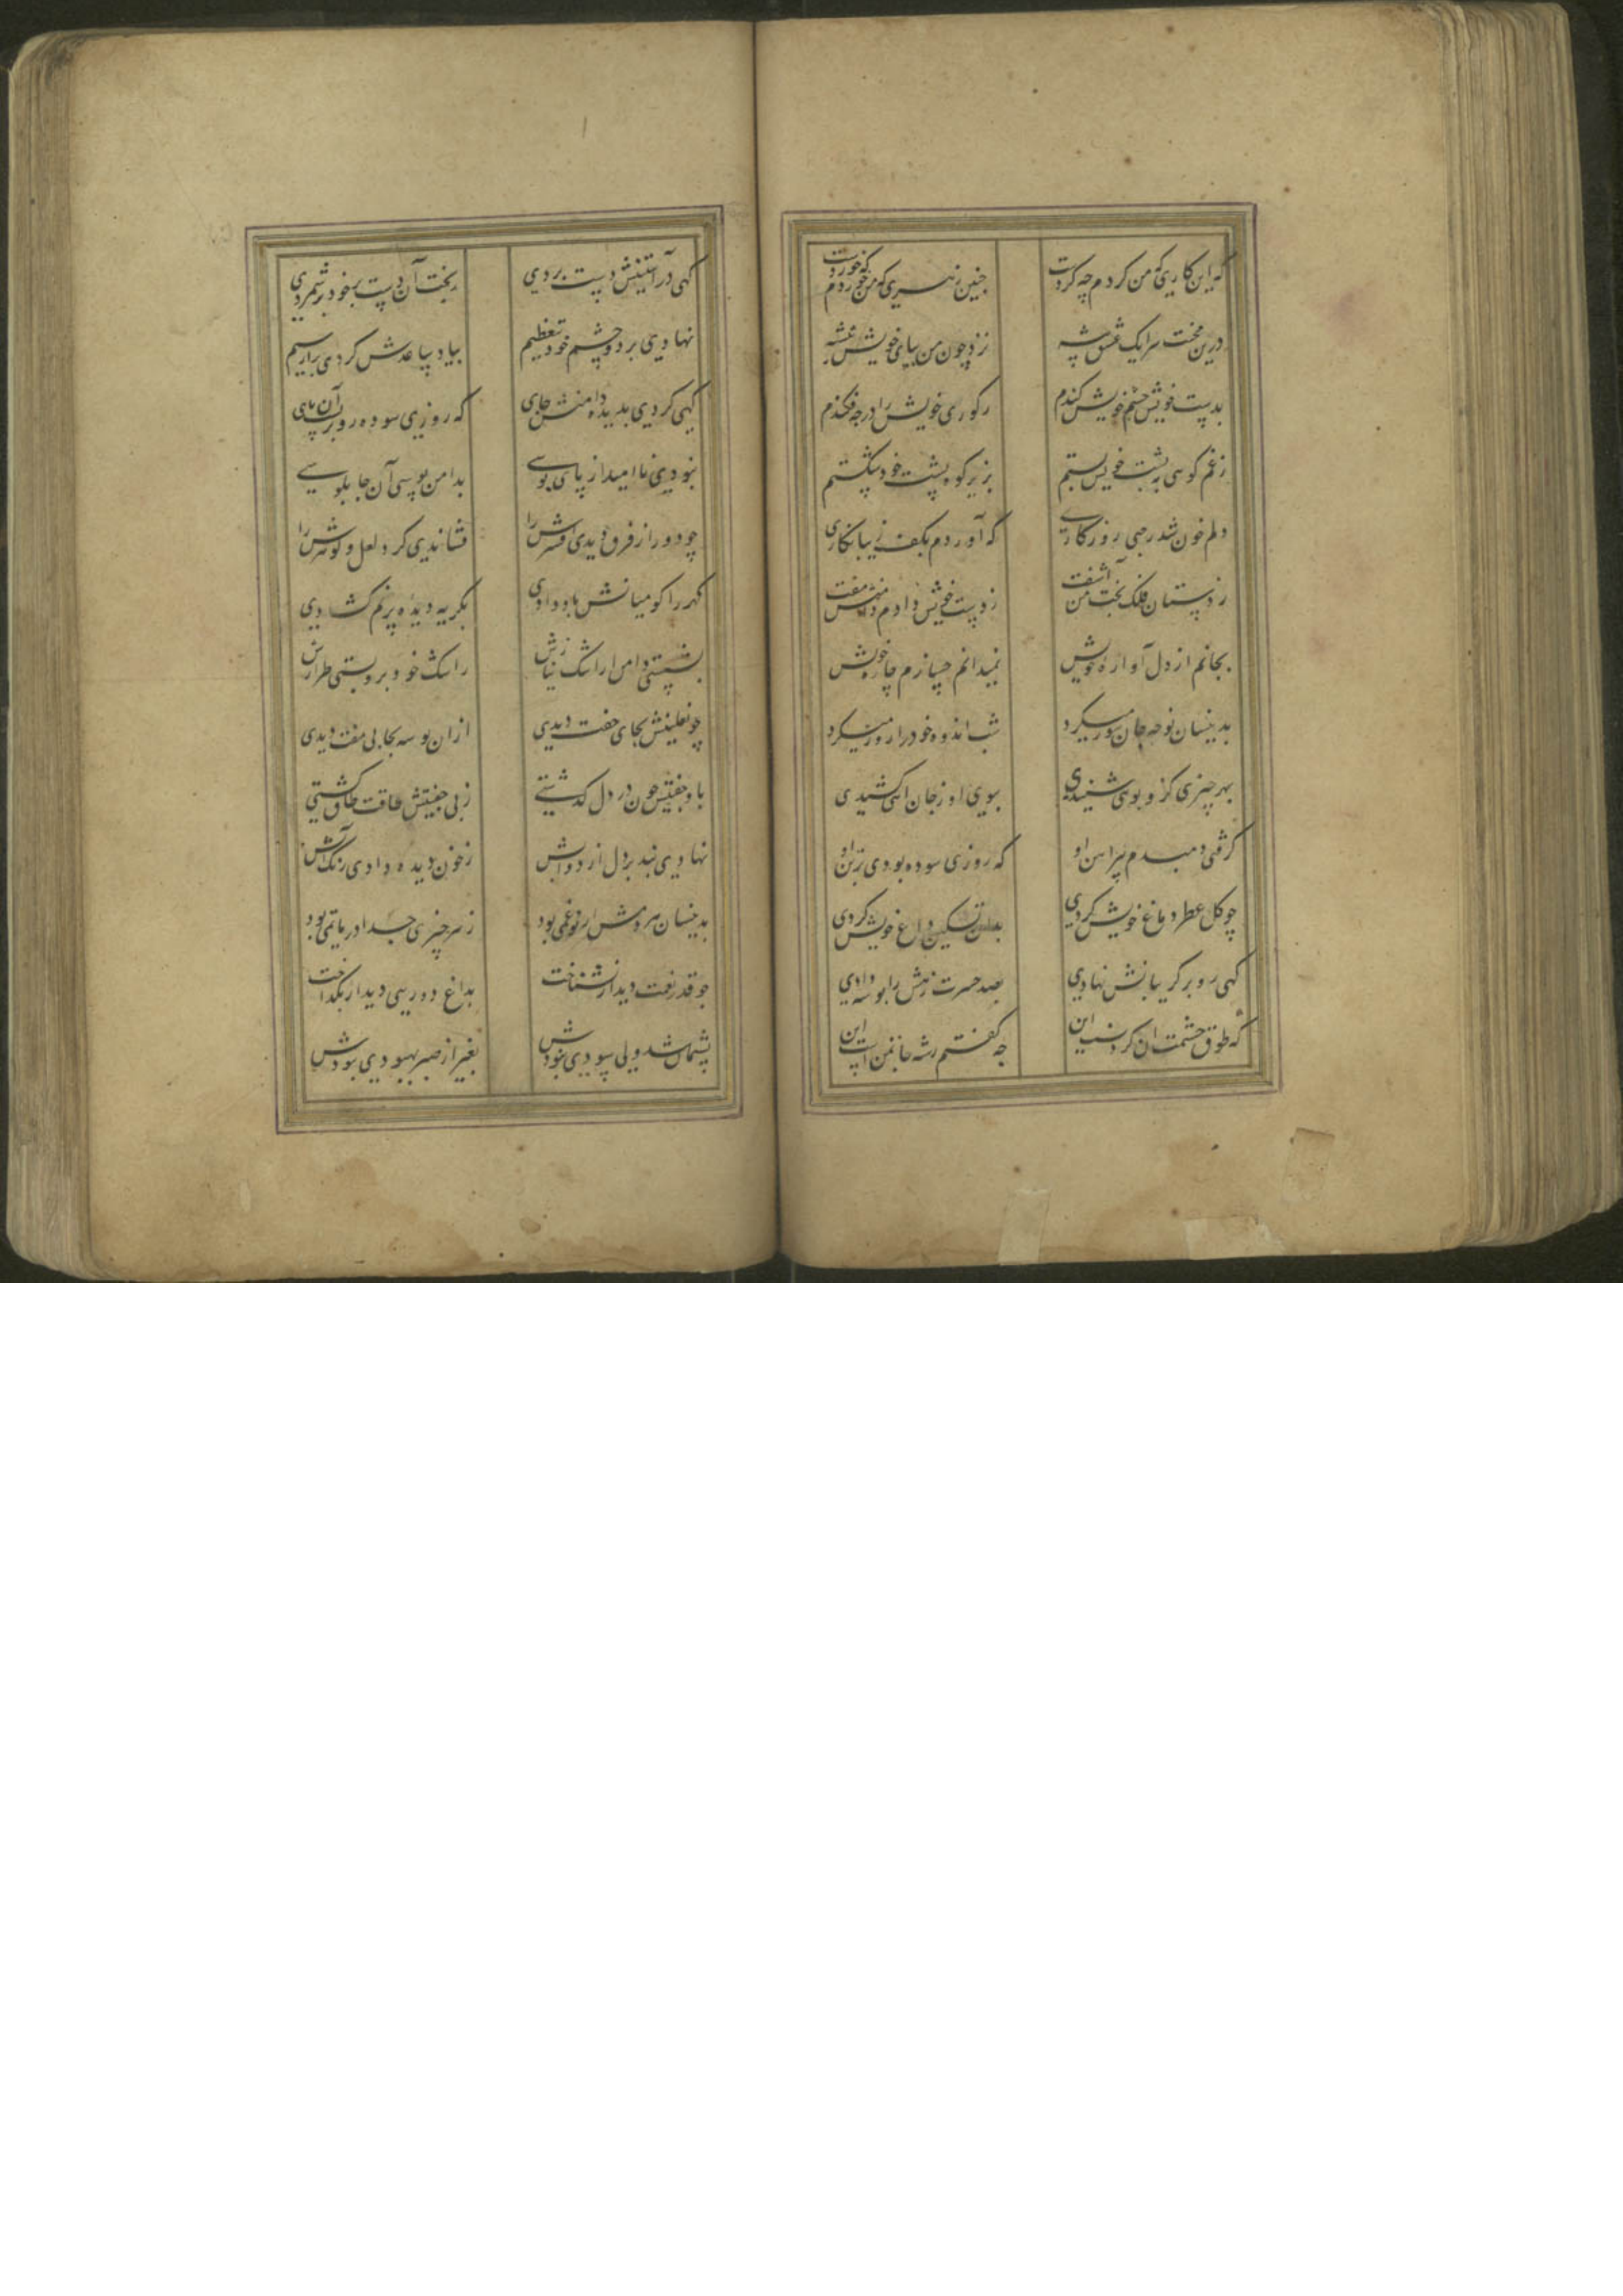 که این کاری که من کردم چه کردست چنین زهری که من خوردم که خوردست
درین محنت سرا یک عشق پیشه نزد چون من بپای خویش تیشه
بدست خویش چشم خویش کندم ز کوری خویش را در چه فکندم
ز غم کوهی به پشت خویش بستم بزیر کوه پشت خود شکستم
دلم خون شد ز پی روزگاری که آوردم بکف زیبا نگاری
ز دستان فلک بخت من آشفت ز دست خویش دادم دامنش مفت
بجانم از دل آواره خویش نمیدانم چسازم چاره خویش
بدینسان نوحه جان سوز میکرد شب اندوه خود را روز میکرد
بهر چیزی کزو بوی شنیدی ببوی او ز جان آهی کشیدی
گرفتی دمبدم پیراهن او که روزی سوده بودی بر تن او
چو گل عطر دماغ خویش کردی بدان تسکین داغ خویش کردی
گهی رو بر گریبانش نهادی بصد حسرت زهش را بوسه دادی
که طوق حشمت آن گردنست این چه گفتم رشته جان منست این
گهی در آستینش دست بردی بخت آن دست برد خود شمردی
نهادی بر دو چشم خود تعظیم بیاد ساعدش کردی پر از سیم
گهی کردی بدیده دامنش جای که روزی سوده رو بر پشت آن پای
نبودی نا امید از پای بوسی بدامن بوسی آن جابلوسی
چو دور از فرق دیدی افسرش را فشاندی گرد لعل و گوهرش را
کمر را کو میانش یاد دادی بگریه دیده پر نم گشادی
بشستی دامن از اشک نیازش ز اشک خود برو بستی طرازش
چو نعلینش بجای جفت دیدی ازان بوسه بجا بی مفت دیدی
باو جفتیش چون در دل گذشتی ز بی جفتیش طاقت طاق گشتی
نهادی بند بر دل از دوالش ز خون دیده دادی رنگ آلش
بدینسان هر دمش از نو غمی بود ز هر چیزی جدا در ماتمی بود
چو قدر نعمت دیدار نشناخت بداغ دوری دیدار بگداخت
پشیمان شد ولی سودی نبودش بغیر از صبر بهبودی نبودش